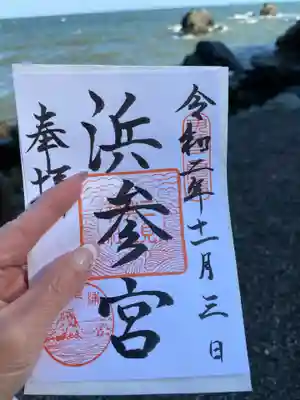 令和二年十一月三日
浜参宮
奉拝